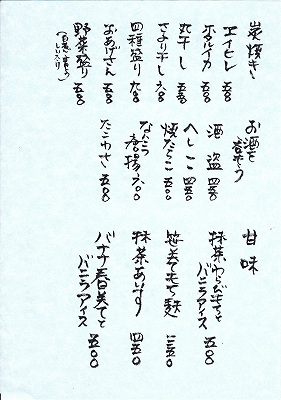 炭焼き
エイヒレ 五〇〇
ホタルイカ 五〇〇
丸干し 五〇〇
さより干し 六〇〇
四種盛り 九〇〇
おあげさん 五〇〇
野菜盛り 五〇〇
お酒を
酒盗 四五〇
へしこ 四五〇
焼たらこ 五〇〇
なんこつ
唐揚 六〇〇
たこわさ 五〇〇
甘味
抹茶わらびもちと
バニラアイス 五〇〇
笹巻もち麩 三五〇
抹茶あいす 四五〇
バナナ春巻と
バニラアイス
五〇〇